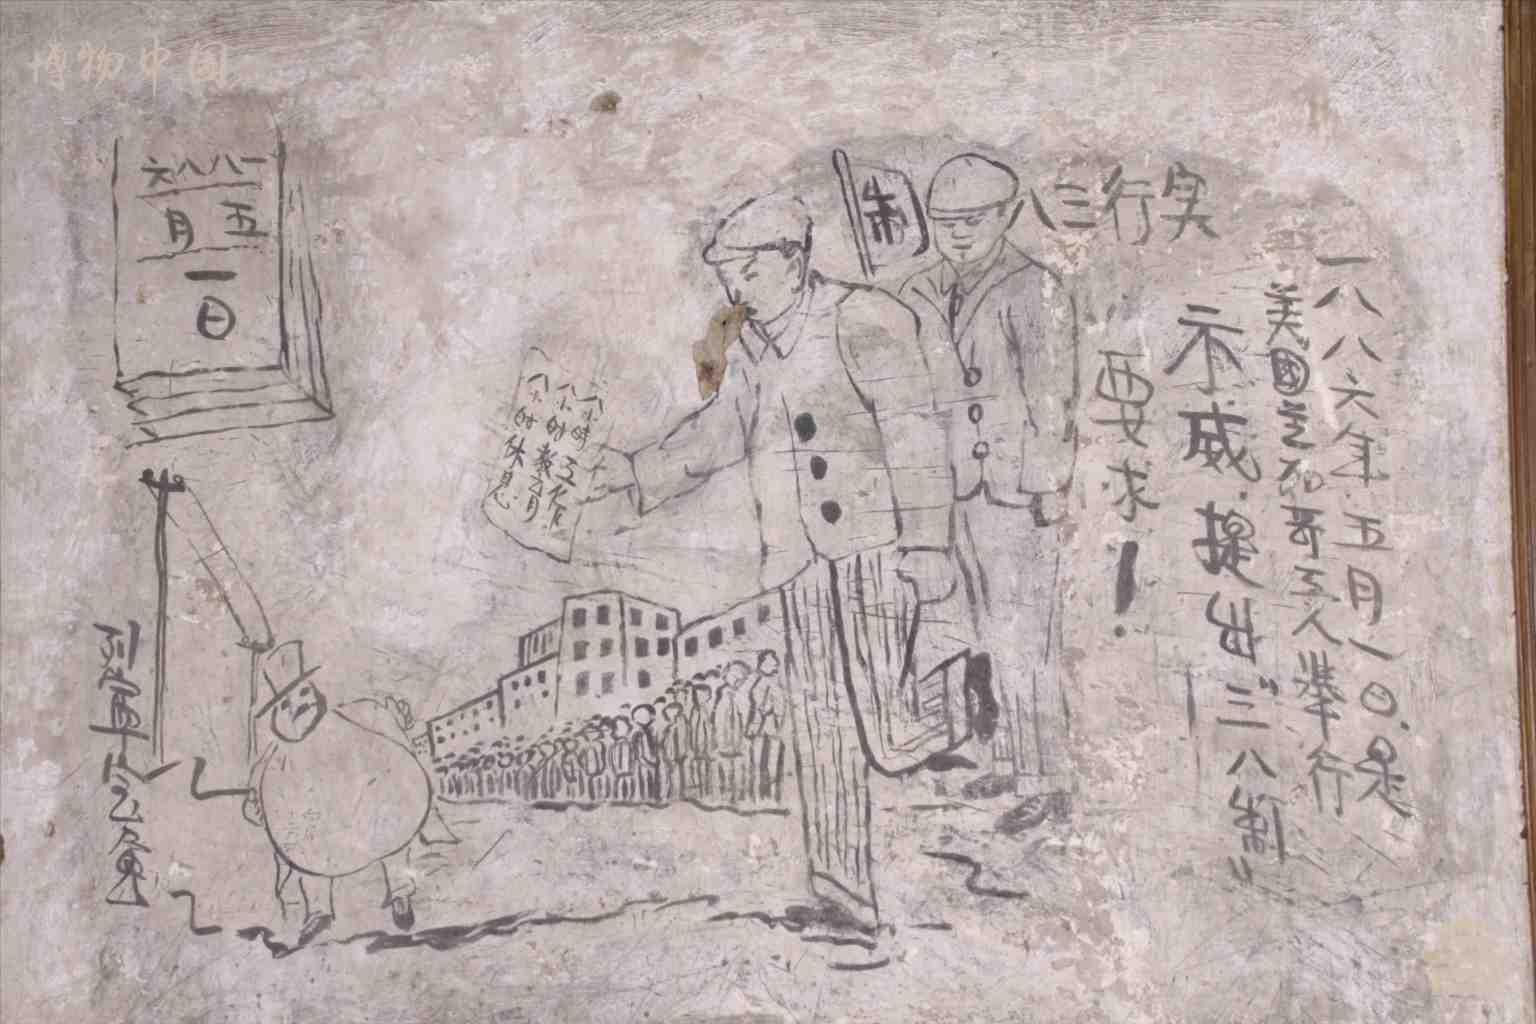 博物中国
一八八六
五月
一日
实行三八制
一八八六年五月一日.是
美國芝加哥工人举行
示威提出"三八制"
要求!
八小時工作
八小时教育
八小时休息